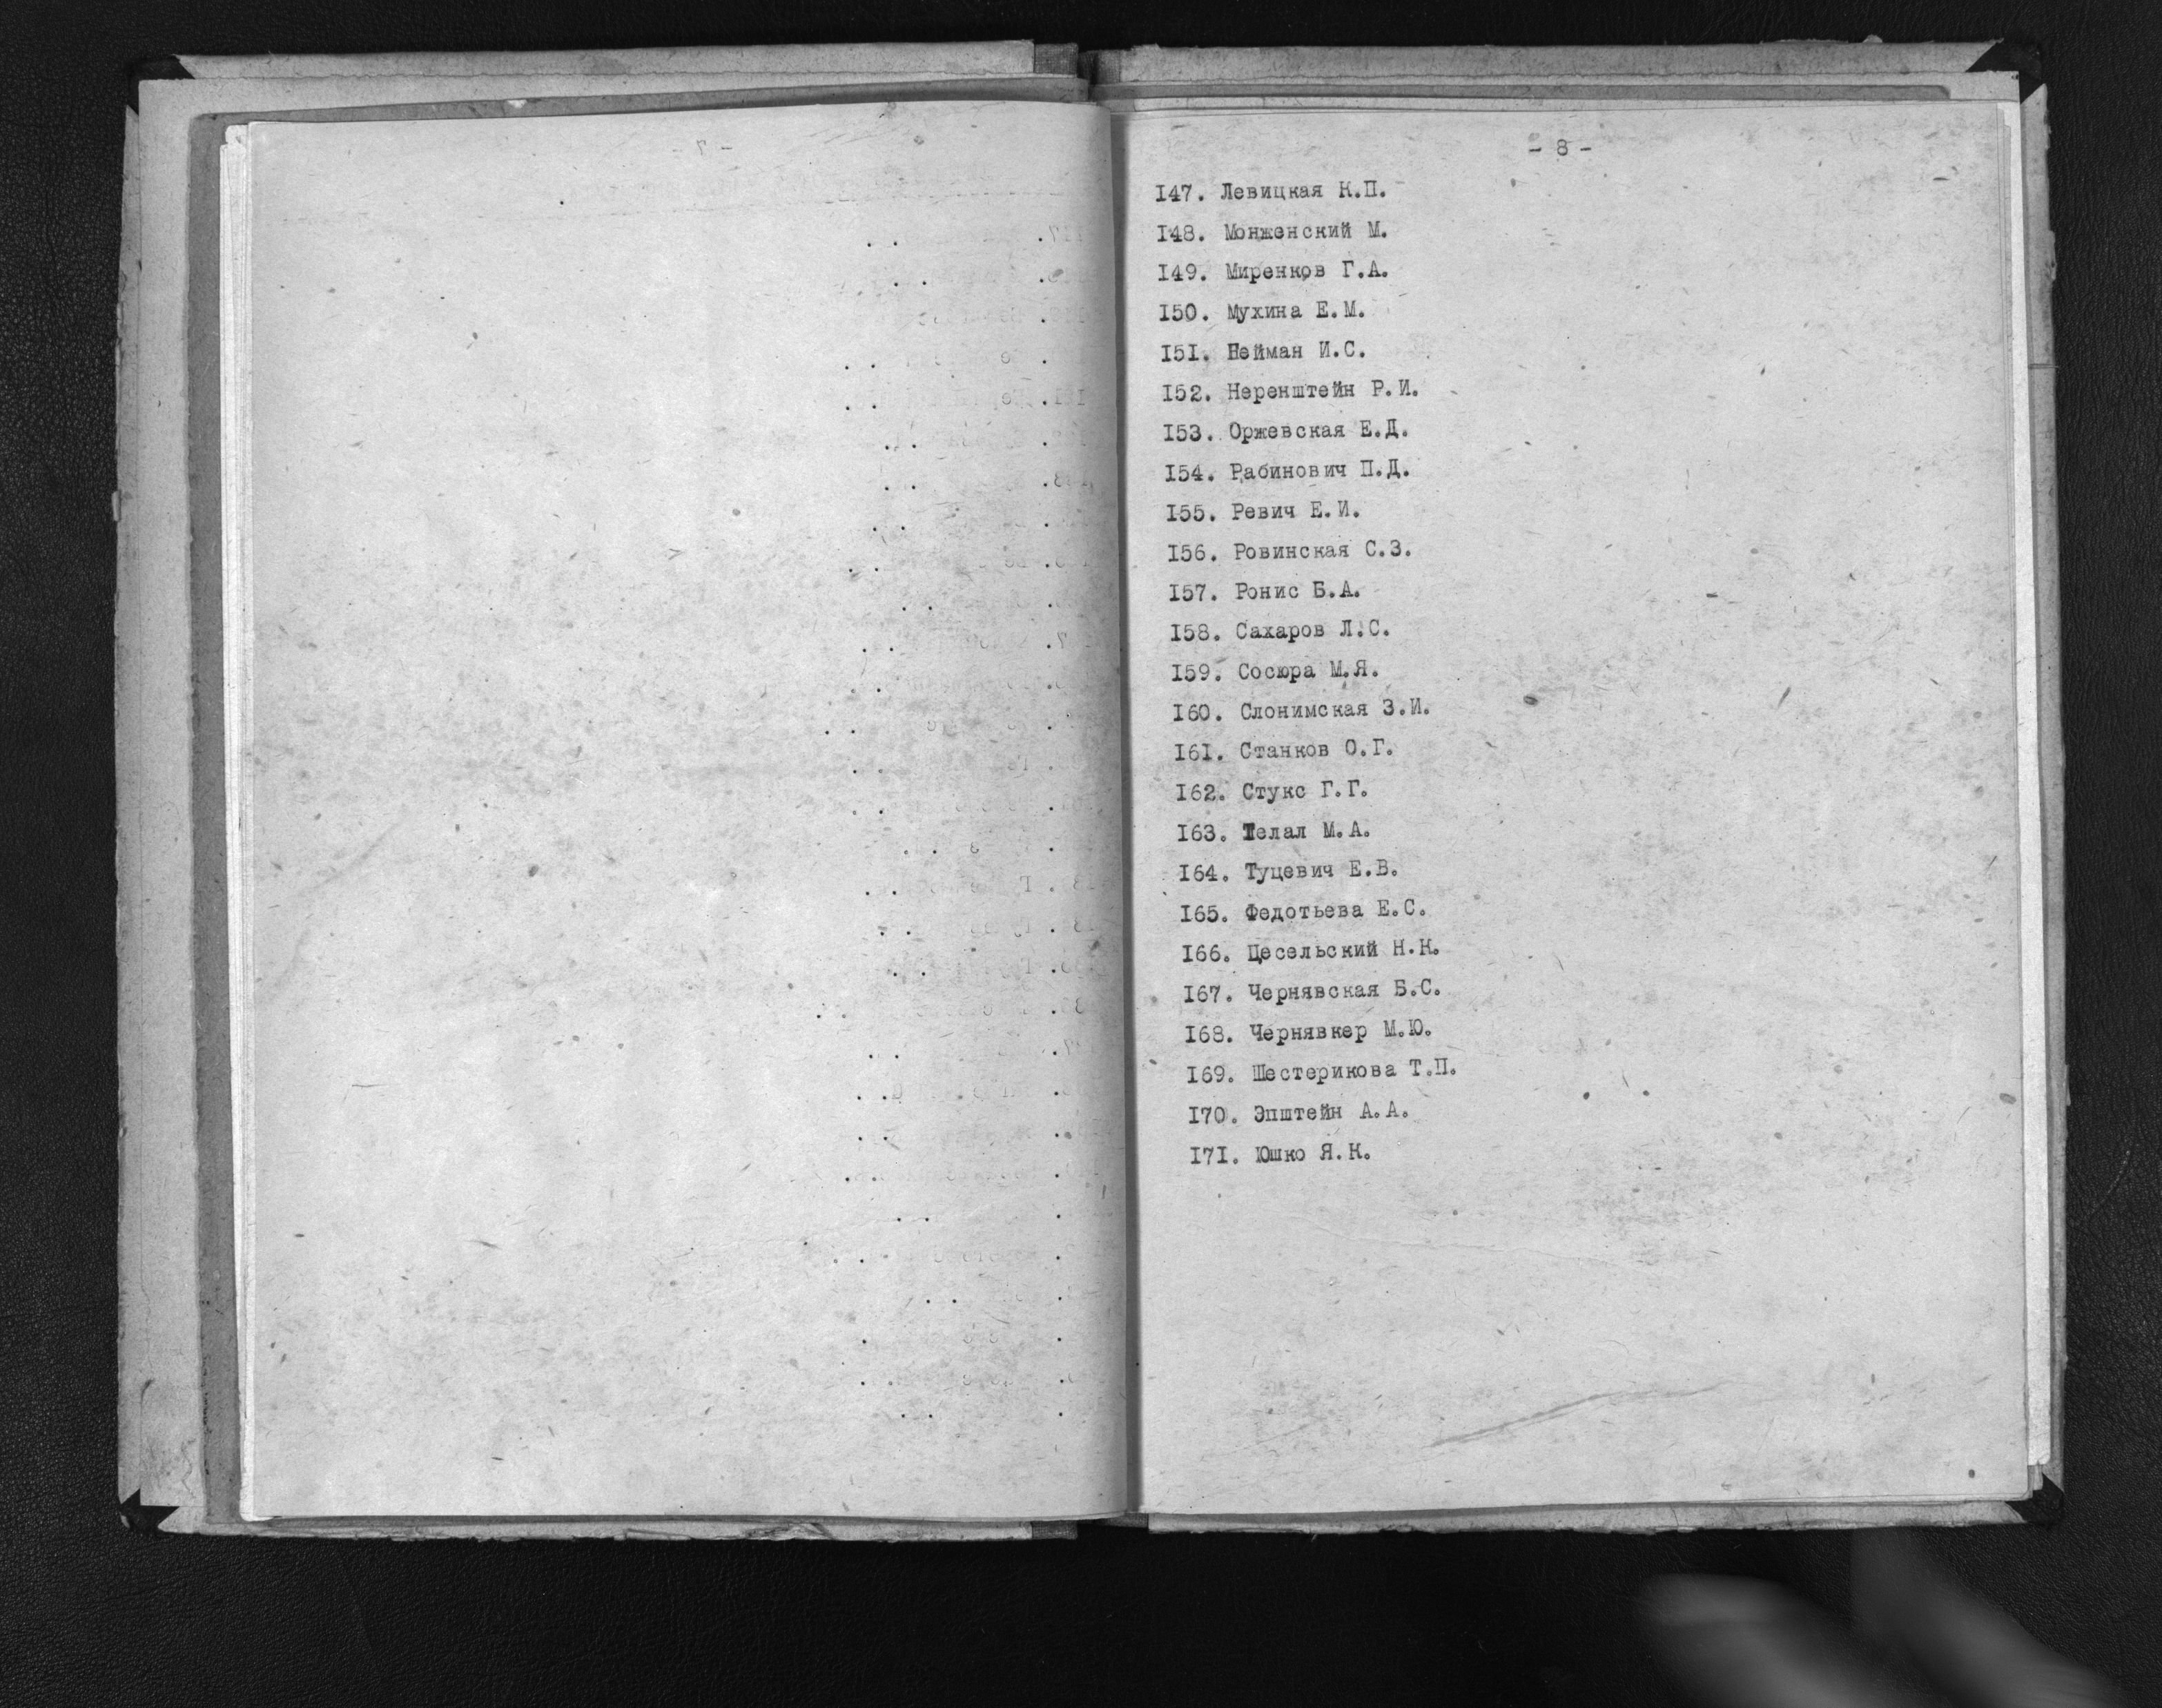 - 8 -
147. Левицкая К.П.
148. Монженский М.
149. Миренков Г.А.
150. Мухина Е.М.
151. Нейман И.С.
152. Неренштейн Р.И.
153. Оржевская Е.Д.
154. Рабинович П.Д.
155. Ревич Е.И.
156. Ровинская С.З.
157. Ронис Б.А.
158. Сахаров Л.С.
159. Сосюра М.Я.
160. Слонимская З.И.
161. Станков О.Г.
162. Стукс Г.Г.
163. Телал М.А.
164. Туцевич Е.В.
165. Федотьева Е.С.
166. Цесельский Н.К.
167. Чернявская Б.С.
168. Чернявкер М.Ю.
169. Шестерикова Т.П.
170. Эпштейн А.А.
171. Юшко Я.К.